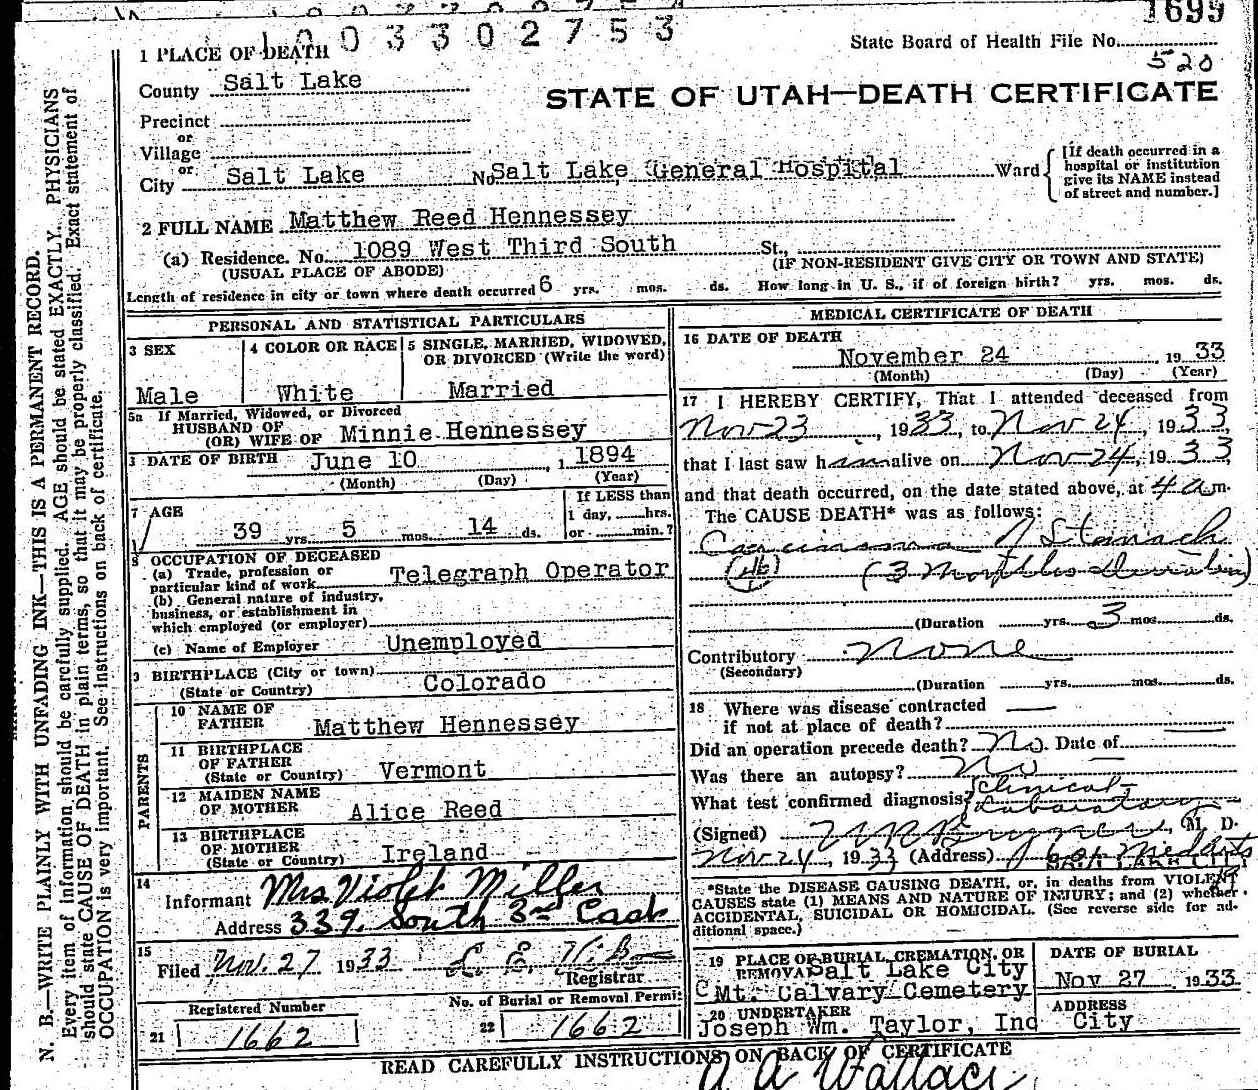 1699
1003302753
State Board of Health File No.
520
1 PLACE OF DEATH
County Salt Lake
STATE OF UTAH—DEATH CERTIFICATE
Precinct
or
Village
or
City Salt Lake No. Salt Lake General Hospital Ward
[If death occurred in a
hospital or institution
give its NAME instead
of street and number.]
2 FULL NAME Matthew Reed Hennessey
(a) Residence. No. 1089 West Third South St.,
(USUAL PLACE OF ABODE) (IF NON-RESIDENT GIVE CITY OR TOWN AND STATE)
Length of residence in city or town where death occurred 6 yrs. mos. ds. How long in U. S., if of foreign birth? yrs. mos. ds.
PERSONAL AND STATISTICAL PARTICULARS
3 SEX
Male
4 COLOR OR RACE
White
5 SINGLE, MARRIED, WIDOWED,
OR DIVORCED (Write the word)
Married
5a If Married, Widowed, or Divorced
HUSBAND OF
(OR) WIFE OF Minnie Hennessey
DATE OF BIRTH June 10, 1894
(Month) (Day) (Year)
7 AGE
39 yrs. 5 mos. 14 ds.
If LESS than
1 day, hrs.
or min.?
8 OCCUPATION OF DECEASED
(a) Trade, profession or
particular kind of work Telegraph Operator
(b) General nature of industry,
business, or establishment in
which employed (or employer)
(c) Name of Employer Unemployed
BIRTHPLACE (City or town)
(State or Country) Colorado
PARENTS
10 NAME OF
FATHER Matthew Hennessey
11 BIRTHPLACE
OF FATHER
(State or Country) Vermont
12 MAIDEN NAME
OF MOTHER Alice Reed
13 BIRTHPLACE
OF MOTHER
(State or Country) Ireland
14
Informant Mrs Violet Miller
Address 339. South 3rd East
15
Filed Nov. 27 1933
Registrar
Registered Number
21 1662
No. of Burial or Removal Permit
22 1662
MEDICAL CERTIFICATE OF DEATH
16 DATE OF DEATH
November 24, 1933
(Month) (Day) (Year)
17 I HEREBY CERTIFY, That I attended deceased from
Nov 23, 1933, to Nov 24, 1933,
that I last saw him alive on Nov 24, 1933
and that death occurred, on the date stated above, at 4 a.m.
The CAUSE DEATH* was as follows:
Carcinoma of Stomach
(46) (3 Months Duration)
(Duration yrs. 3 mos. ds.
Contributory None
(Secondary)
(Duration yrs. mos. ds.
18 Where was disease contracted
if not at place of death?
Did an operation precede death? No. Date of
Was there an autopsy? No
What test confirmed diagnosis? Clinical
Laboratory
(Signed) M. D.
Nov 24, 1933 (Address)
*State the DISEASE CAUSING DEATH, or, in deaths from VIOLENT
CAUSES state (1) MEANS AND NATURE OF INJURY; and (2) whether
ACCIDENTAL, SUICIDAL OR HOMICIDAL. (See reverse side for additional space.)
19 PLACE OF BURIAL, CREMATION, OR
REMOVAL Salt Lake City
Mt. Calvary Cemetery
DATE OF BURIAL
Nov 27 1933
20 UNDERTAKER
Joseph Wm. Taylor, Inc
ADDRESS
City
READ CAREFULLY INSTRUCTIONS ON BACK OF CERTIFICATE
A A Wallace
N. B.—WRITE PLAINLY WITH UNFADING INK—THIS IS A PERMANENT RECORD.
Every item of information should be carefully supplied. AGE should be stated EXACTLY. PHYSICIANS
should state CAUSE OF DEATH in plain terms, so that it may be properly classified. Exact statement of
OCCUPATION is very important. See instructions on back of certificate.